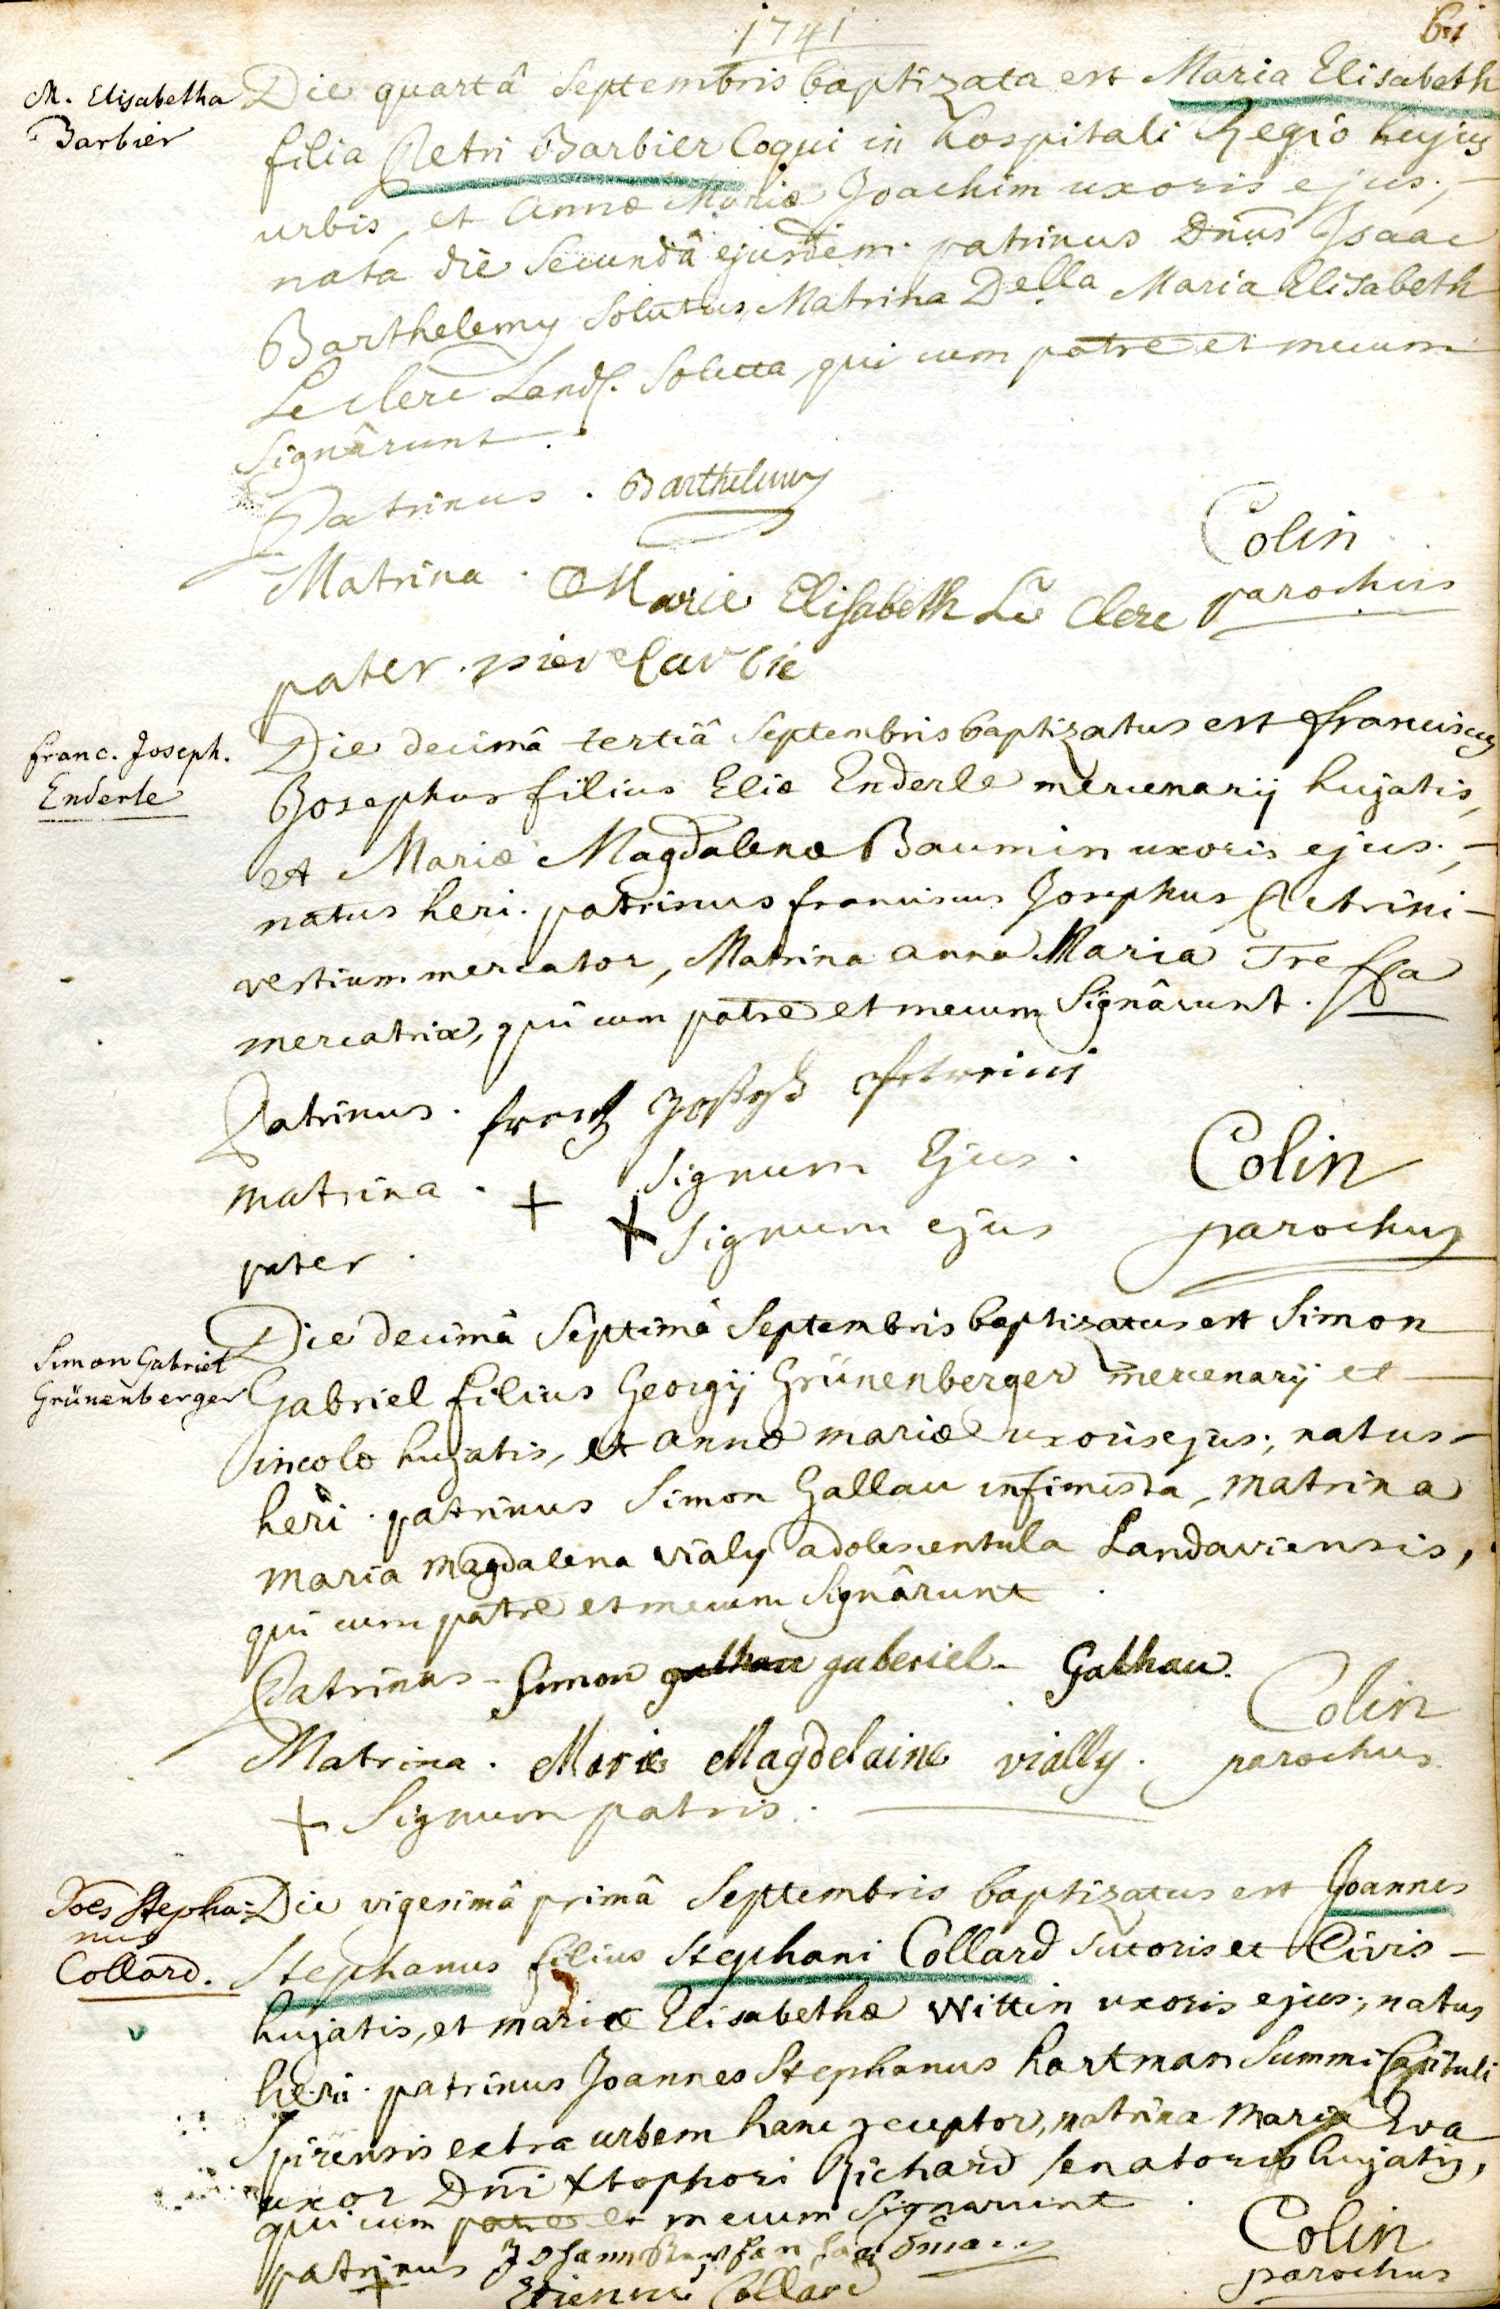 1741
61
M. Elisabetha
Barbier
Die quartâ Septembris baptizata est Maria Elisabeth
filia Petri Barbier Coqui in hospitali Regio hujus
urbis, et Annæ Mariæ Joachim uxoris ejus.,
nata die Secundâ ejusdem. patrinus Dnus Isaac
Barthelemy solutus, Matrina Della Maria Elisabeth
Leclerc Land. Soluta, qui cum patre et mecum
signârunt.
Patrinus. Barthelemy
Colin
Matrina. Marie Elisabeth Le Clerc
parochus
pater. pier barbie
Franc. Joseph.
Enderle
Die decimâ tertiâ Septembris baptizatus est Franciscus
Josephus filius Eliæ Enderle mercenarij hujatis,
et Mariæ Magdalenæ Baumin uxoris ejus.,
natus heri. patrinus franciscus Josephus Petrini
vestium mercator, Matrina anna Maria Tressa
mercatrix, qui cum patre et mecum signârunt.
Patrinus. frantz Joseph Petrini
matrina. + signum Ejus.
Colin
pater. + signum ejus
parochus
Simon Gabriel
Grünenberger
Die decimâ septimâ Septembris baptizatus est Simon
Gabriel filius Georgij Grünenberger mercenarij et
incolæ hujatis, et annæ mariæ uxoris ejus., natus
heri. patrinus Simon Gallau infimista, matrina
maria magdalena vialy adolescentula Landaviensis,
qui cum patre et mecum signârunt.
Patrinus - Simon galhau gaberiel. Galhau.
Colin
Matrina. Marie Magdelaine vially.
parochus
+ Signum patris.
Joes Stepha-
nus
Collard.
Die vigesimâ primâ Septembris baptizatus est Joannes
Stephanus filius Stephani Collard sutoris et Civis
hujatis, et mariæ Elisabethæ Wittin uxoris ejus., natus
heri. patrinus Joannes Stephanus hartman Summi Capituli
Spirensis extra urbem hanc receptor, matrina maria Eva
uxor Dni Xtophori Richard senatoris hujatis,
qui cum patre et mecum signarunt.
Colin
patrinus Johann
parochus
+ Etienne Collard